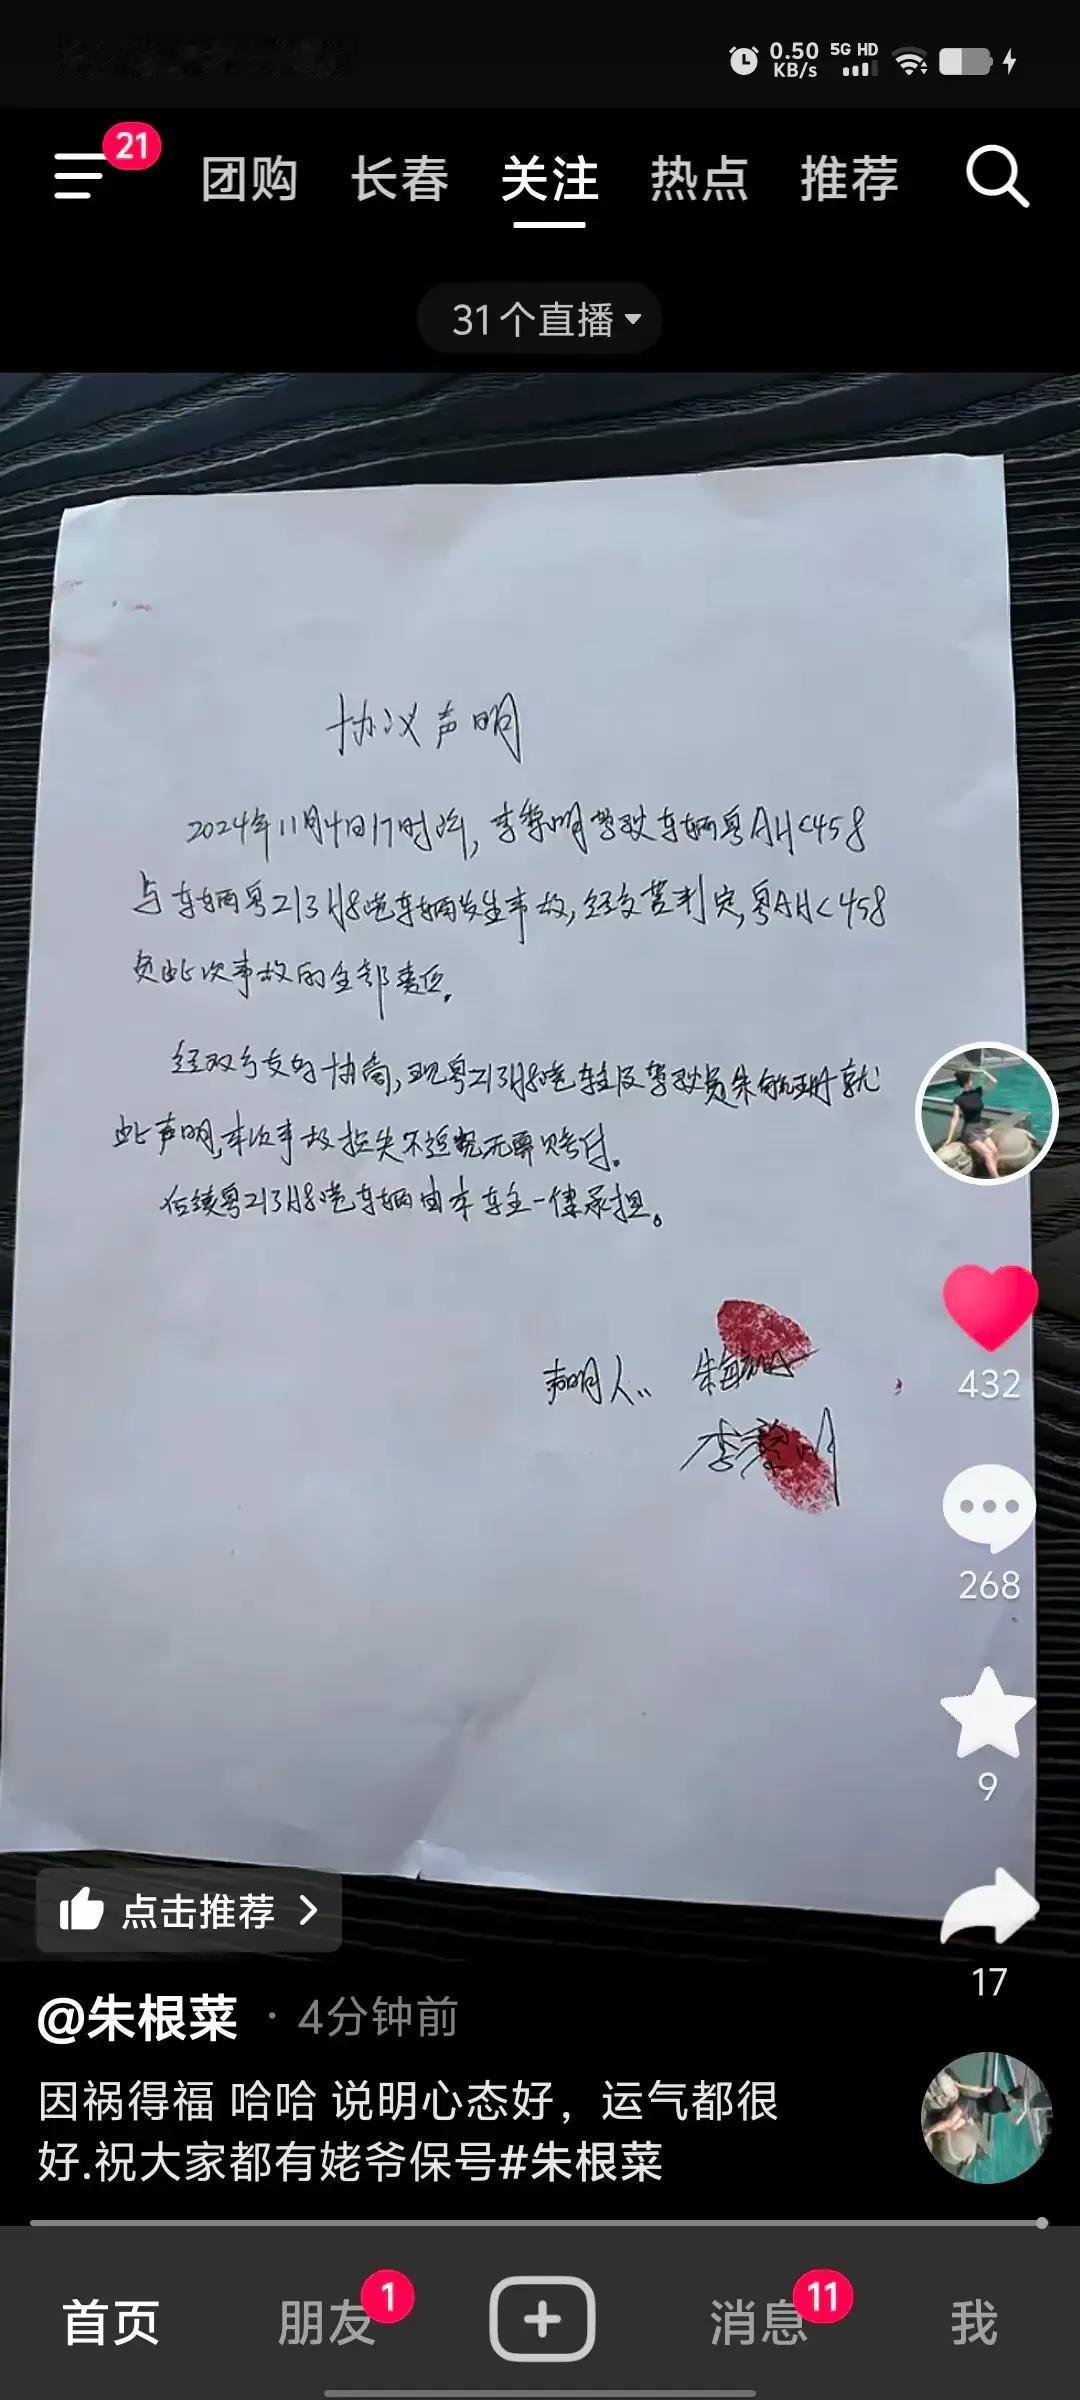 0.50 KB/s 5G HD
21
团购 长春 关注 热点 推荐
31个直播
协议声明
2024年11月4日17时许，李黎明驾驶车辆粤AH<458
与车辆粤Z13H8港车辆发生事故，经交警判定，粤AH<458
负此次事故的全部责任。
经双方友好协商，现粤Z13H8港车主及驾驶员朱就
此声明，本次事故损失不追究无需赔付。
后续粤Z13H8港车辆由本车主一律承担。
声明人：朱
李黎明
432
268
9
17
点击推荐
@朱根菜 · 4分钟前
因祸得福 哈哈 说明心态好，运气都很
好.祝大家都有姥爷保号#朱根菜
首页 朋友 1 消息 11 我